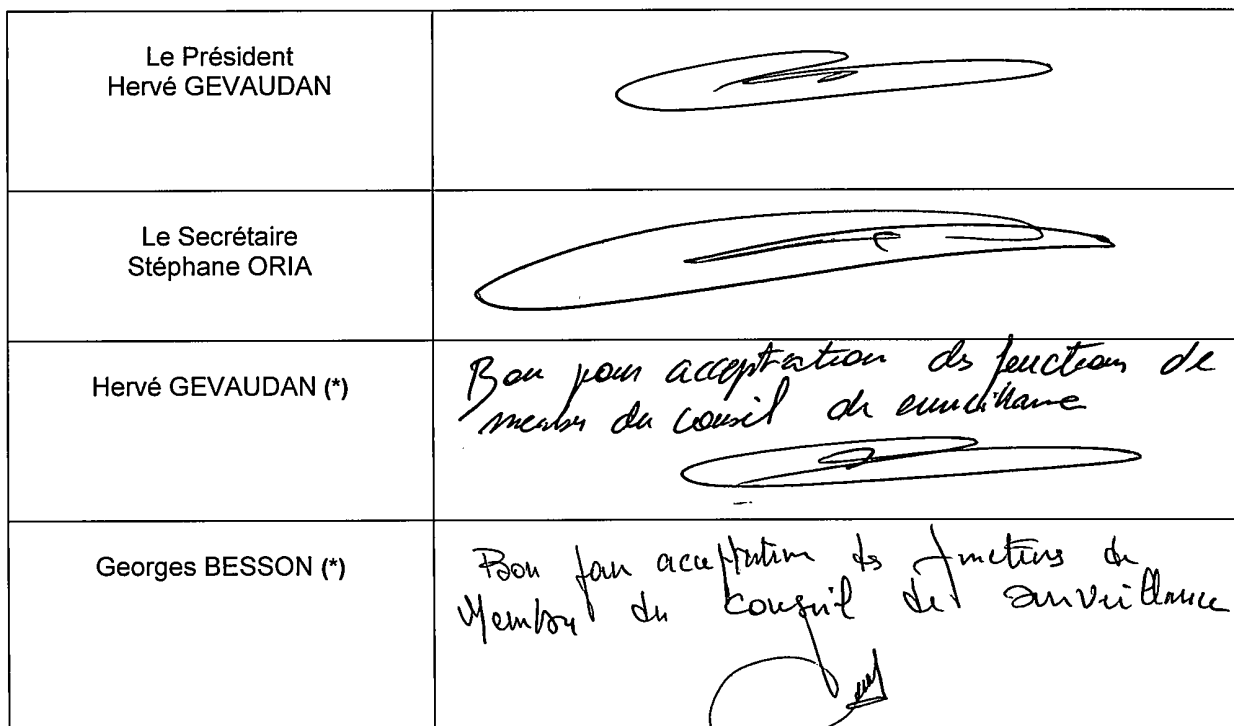 Le Président
Hervé GEVAUDAN
Le Secrétaire
Stéphane ORIA
Hervé GEVAUDAN (*)
Bon pour acceptation des fonctions de
membre du conseil de surveillance
Georges BESSON (*)
Bon pour acceptation des fonctions de
Membre du Conseil de surveillance